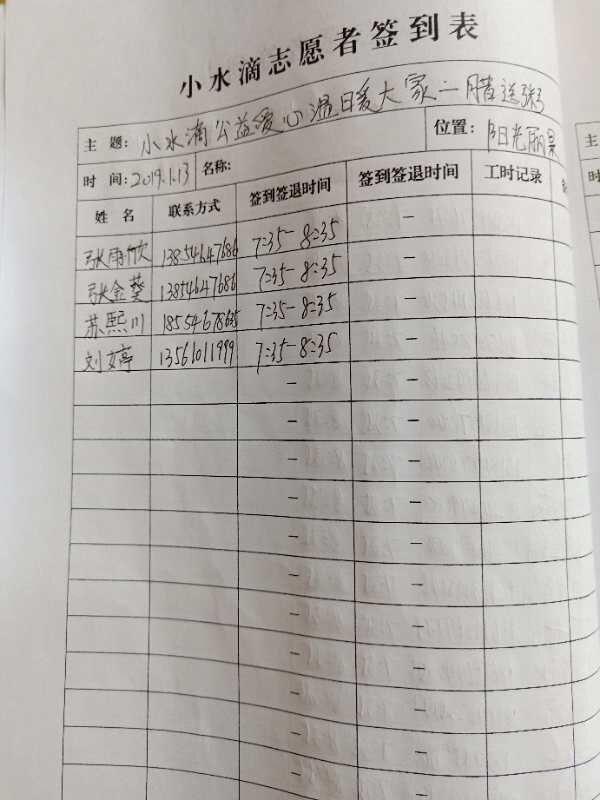 小水滴志愿者签到表
主 题: 小水滴公益爱心温暖大家一腊送粥
时 间: 2019.1.13 名称: 位置: 阳光丽景
姓 名 联系方式 签到签退时间 签到签退时间 工时记录
张雨欣 13854647686 7:35-8:35 -
张金葵 13854647686 7:35-8:35 -
苏熙川 18554678665 7:35-8:35 -
刘婷 13561011999 7:35-8:35 -
- -
- -
- -
- -
- -
- -
- -
- -
- -
- -
- -
主
时